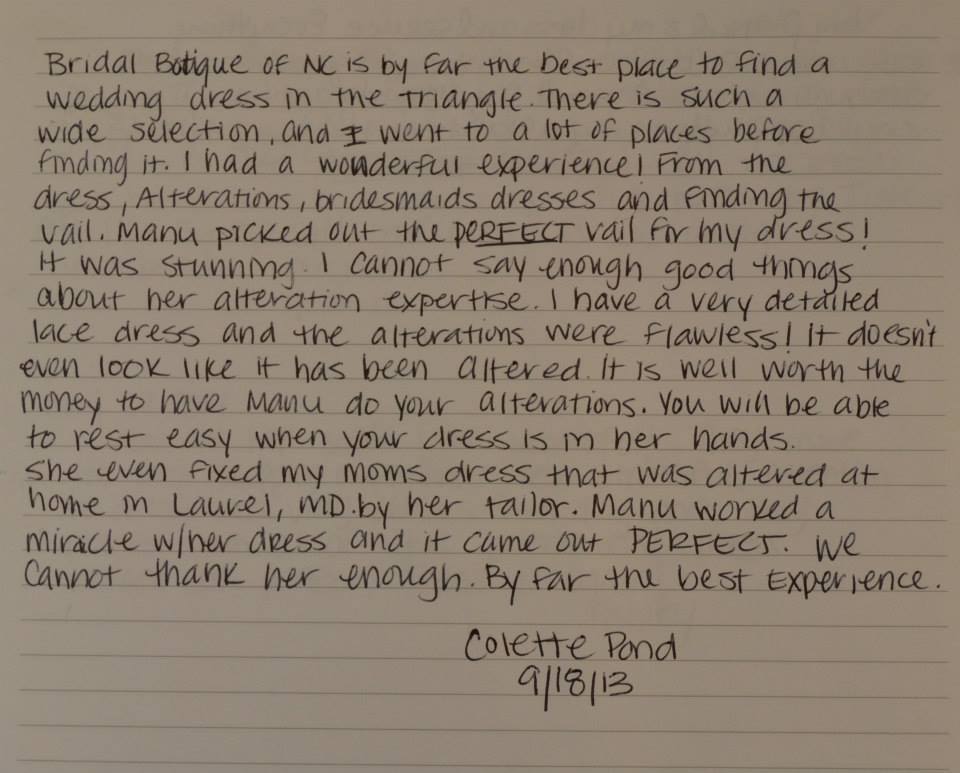 Bridal Botique of NC is by far the best place to find a
wedding dress in the Triangle. There is such a
wide selection, and I went to a lot of places before
finding it. I had a wonderful experience! From the
dress, Alterations, bridesmaids dresses and finding the
vail. Manu picked out the PERFECT vail for my dress!
It was stunning. I cannot say enough good things
about her alteration expertise. I have a very detailed
lace dress and the alterations were flawless! It doesn't
even look like it has been altered. It is well worth the
money to have Manu do your alterations. You will be able
to rest easy when your dress is in her hands.
She even fixed my moms dress that was altered at
home in Laurel, MD. by her tailor. Manu worked a
miracle w/her dress and it came out PERFECT. We
cannot thank her enough. By far the best Experience.
Colette Pond
9/18/13